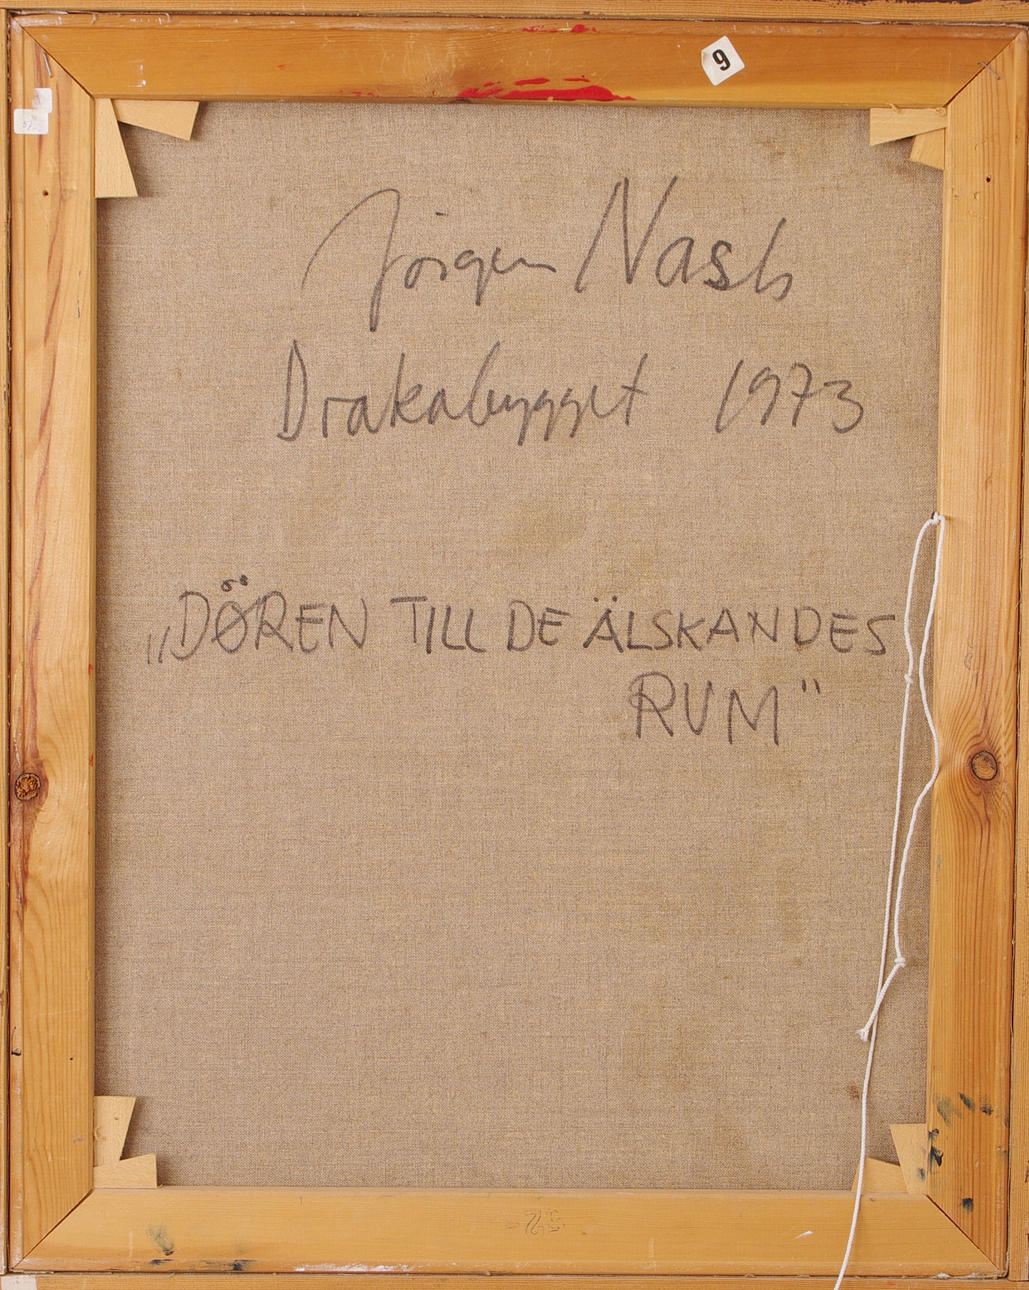 9
Jörgen Nash
Drakabygget 1973
„DÖREN TILL DE ÄLSKANDES
RUM"